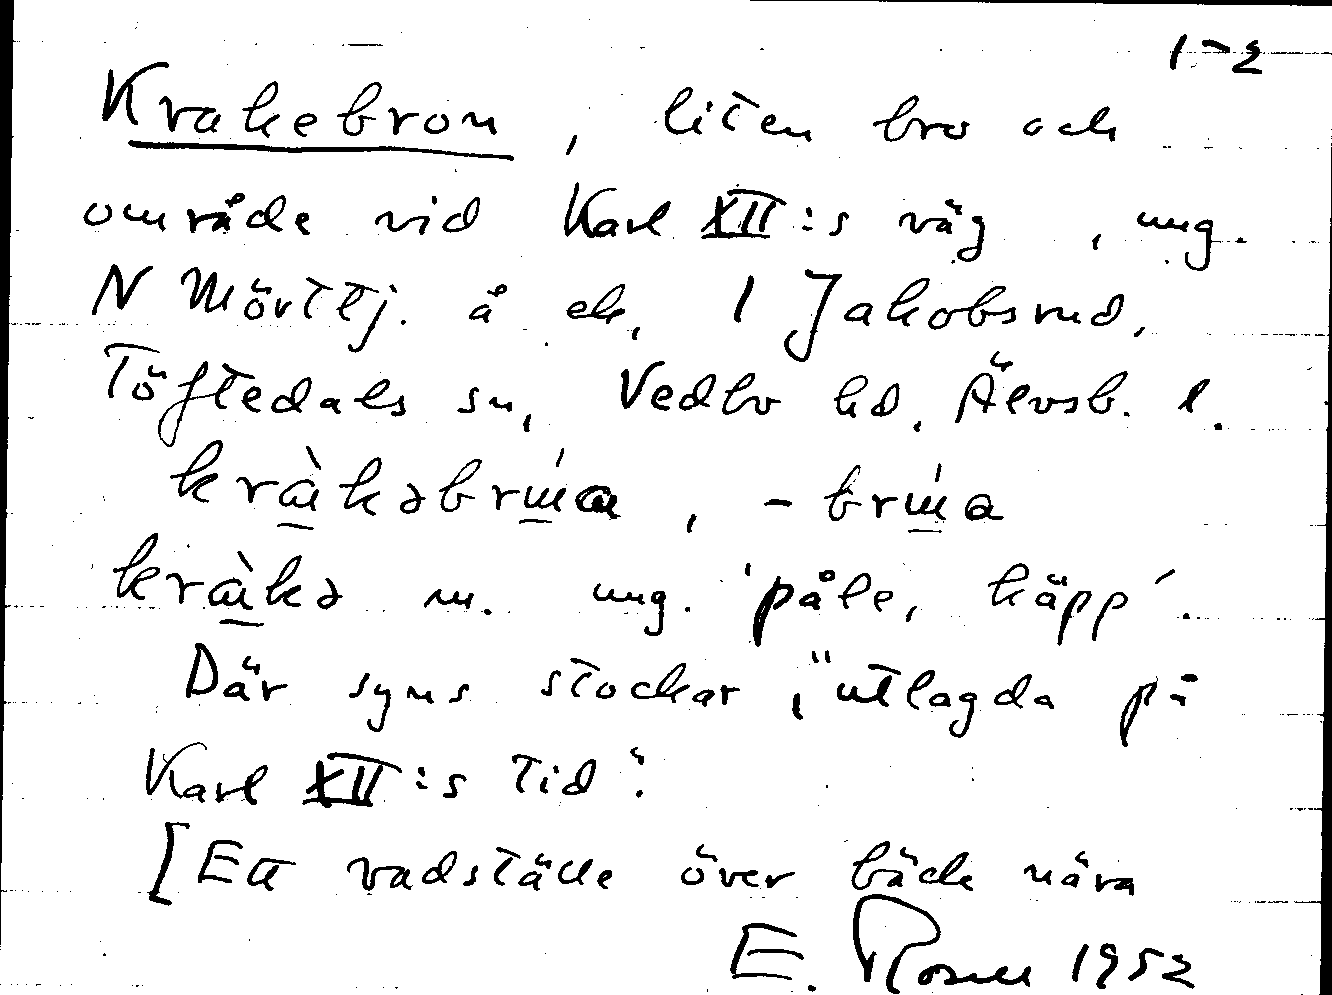 1-2
Krakebron, liten bro och
område vid Karl XII:s väg, ung.
N Mörttj. å ek, 1 Jakobsrud,
Töftedals sn, Vedbo hd, Älvsb. l.
-
m. ung. 'påle, käpp'.
Där syns stockar, "utlagda på
Karl XII:s tid".
[Ett vadställe över bäck nära
E. Rosell 1952